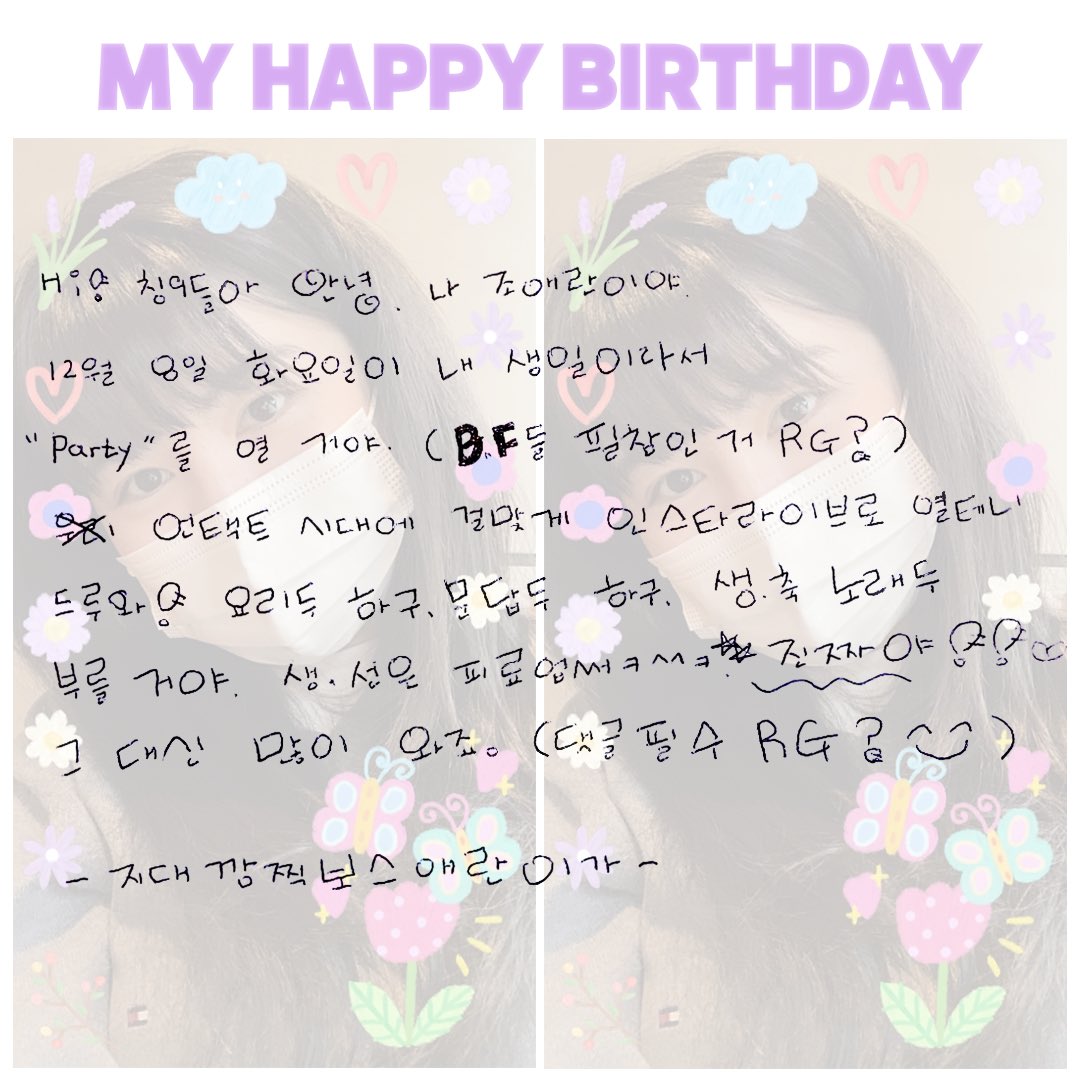 MY HAPPY BIRTHDAY
H아양 칭9들아 안녕. 나 조애란이야.
12월 8일 화요일이 내 생일이라서
"Party"를 열 거야. (B.F들 필참인 거 RG?)
언택트 시대에 걸맞게 인스타라이브로 열테니
드루와양 요리두 하구, 문답두 하구, 생.축 노래두
부를 거야. 생.선은 피료업써ㅋ^^ㅋ 진짜야
그 대신 많이 와죠. (댓글 필수 RG?)
- 지대 깜찍보스 애란이가 -